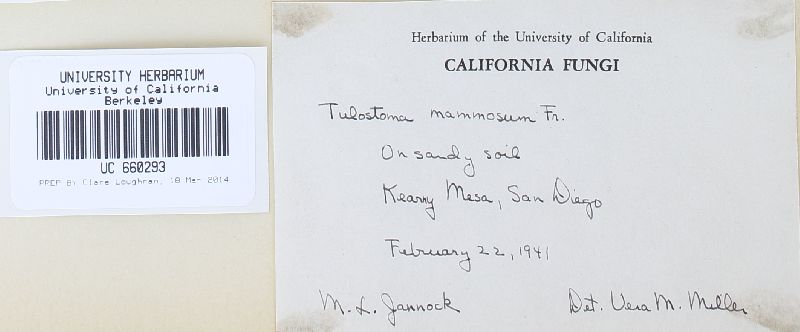 UNIVERSITY HERBARIUM
University of California
Berkeley
UC 660293
PREP BY Clare Loughran, 18 Mar 2014
Herbarium of the University of California
CALIFORNIA FUNGI
Tulostoma mammosum Fr.
On sandy soil
Kearny Mesa, San Diego
February 22, 1941
M. L. Jannock
Det. Vera M. Miller